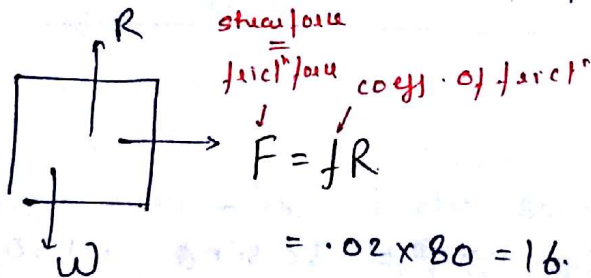 R
shear force
=
frictⁿ force
coeff. of frictⁿ
F = fR
= .02 x 80 = 16.
W